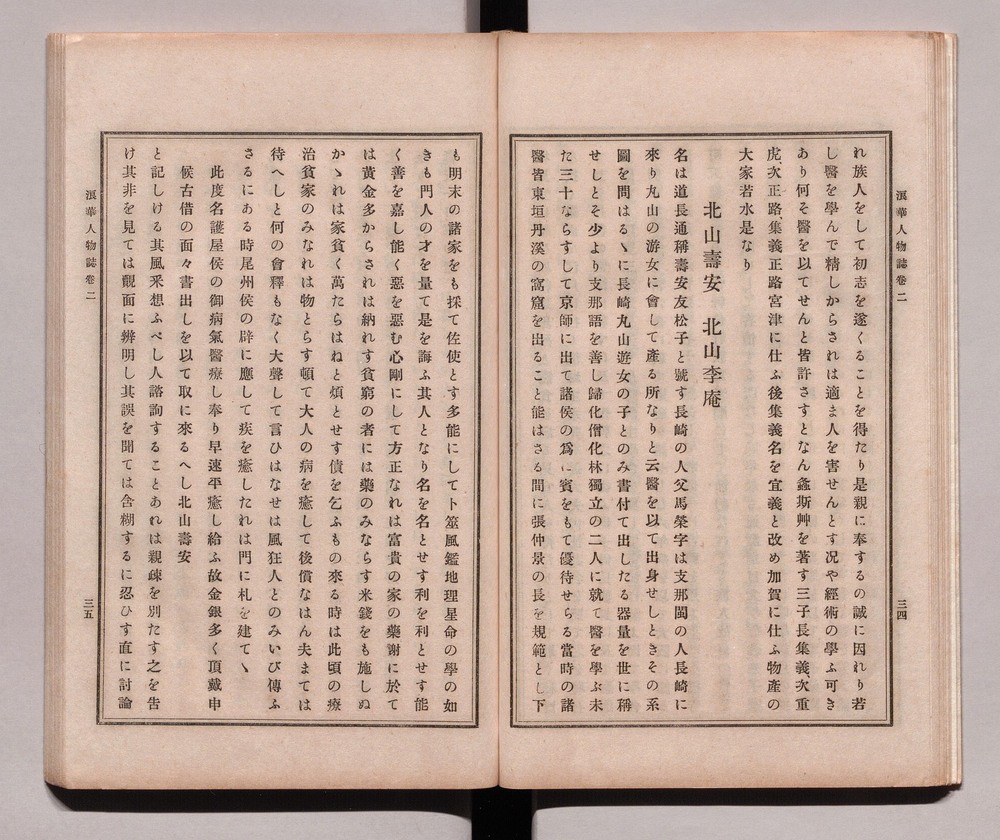 浪華人物誌卷二
三四
れ族人をして初志を遂くることを得たり是親に奉するの誠に因れり若
し醫を學んで精しからされは適ま人を害せんとす况や經術の學ふ可き
あり何そ醫を以てせんと皆許さすとなん螽斯艸を著す三子長集義次重
虎次正路集義正路宮津に仕ふ後集義名を宜義と改め加賀に仕ふ物產の
大家若水是なり
北山壽安 北山李庵
名は道長通稱壽安友松子と號す長崎の人父馬榮字は支那閩の人長崎に
來り丸山の游女に會して產る所なりと云醫を以て出身せしときその系
圖を問はるゝに長崎丸山遊女の子とのみ書付て出したる器量を世に稱
せしとそ少より支那語を善し歸化僧化林獨立の二人に就て醫を學ふ未
た三十ならすして京師に出て諸侯の爲に賓をもて優待せらる當時の諸
醫皆東垣丹溪の窩窟を出ること能はさる間に張仲景の長を規範とし下
も明末の諸家をも採て佐使とす多能にして卜筮風鑑地理星命の學の如
きも門人の才を量て是を誨ふ其人となり名を名とせす利を利とせす能
く善を嘉し能く惡を惡む心剛にして方正なれは富貴の家の藥謝に於て
は黃金多からされは納れす貧窮の者には藥のみならす米錢をも施しぬ
かゝれは家貧く萬たらはねと煩とせす債を乞ふもの來る時は此頃の療
治貧家のみなれは物とらす頓て大人の病を癒して後償なはん夫まては
待へしと何の會釋もなく大聲して言ひはなせは風狂人とのみいひ傳ふ
さるにある時尾州侯の辟に應して疾を癒したれは門に札を建てゝ
此度名護屋侯の御病氣醫療し奉り早速平癒し給ふ故金銀多く頂戴申
候古借の面々書出しを以て取に來るへし北山壽安
と記しける其風釆想ふべし人諮詢することあれは親疎を別たす之を告
け其非を見ては覿面に辨明し其誤を聞ては含糊するに忍ひす直に討論
浪華人物誌卷二
三五